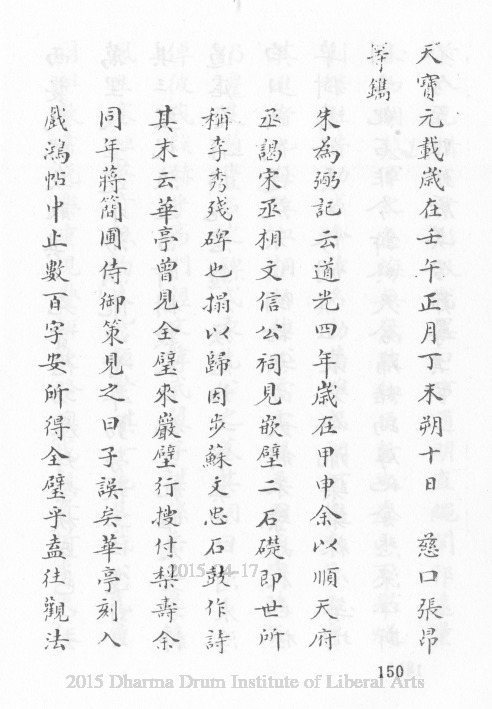 天寶元載歲在壬午正月丁未朔十日　慈口張昂
等鐫
朱為弼記云道光四年歲在甲申余以順天府
丞謁宋丞相文信公祠見嵌壁二石礎即世所
稱李秀殘碑也搨以歸因步蘇文忠石鼓作詩
其末云華亭曾見全璧來巖壁行搜付梨壽余
同年蔣簡圃侍御策見之曰子誤矣華亭刻入
戲鴻帖中止數百字安所得全璧乎盍往觀法
150
2015-04-17
2015 Dharma Drum Institute of Liberal Arts